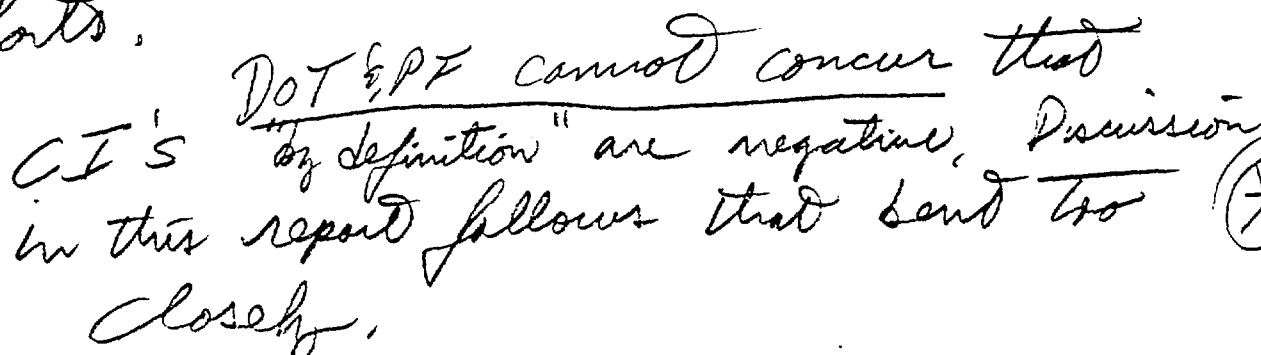 orts.
DOT&PF cannot concur that
CI's "by definition" are negative. Discussion
in this report follows that bent too
closely.